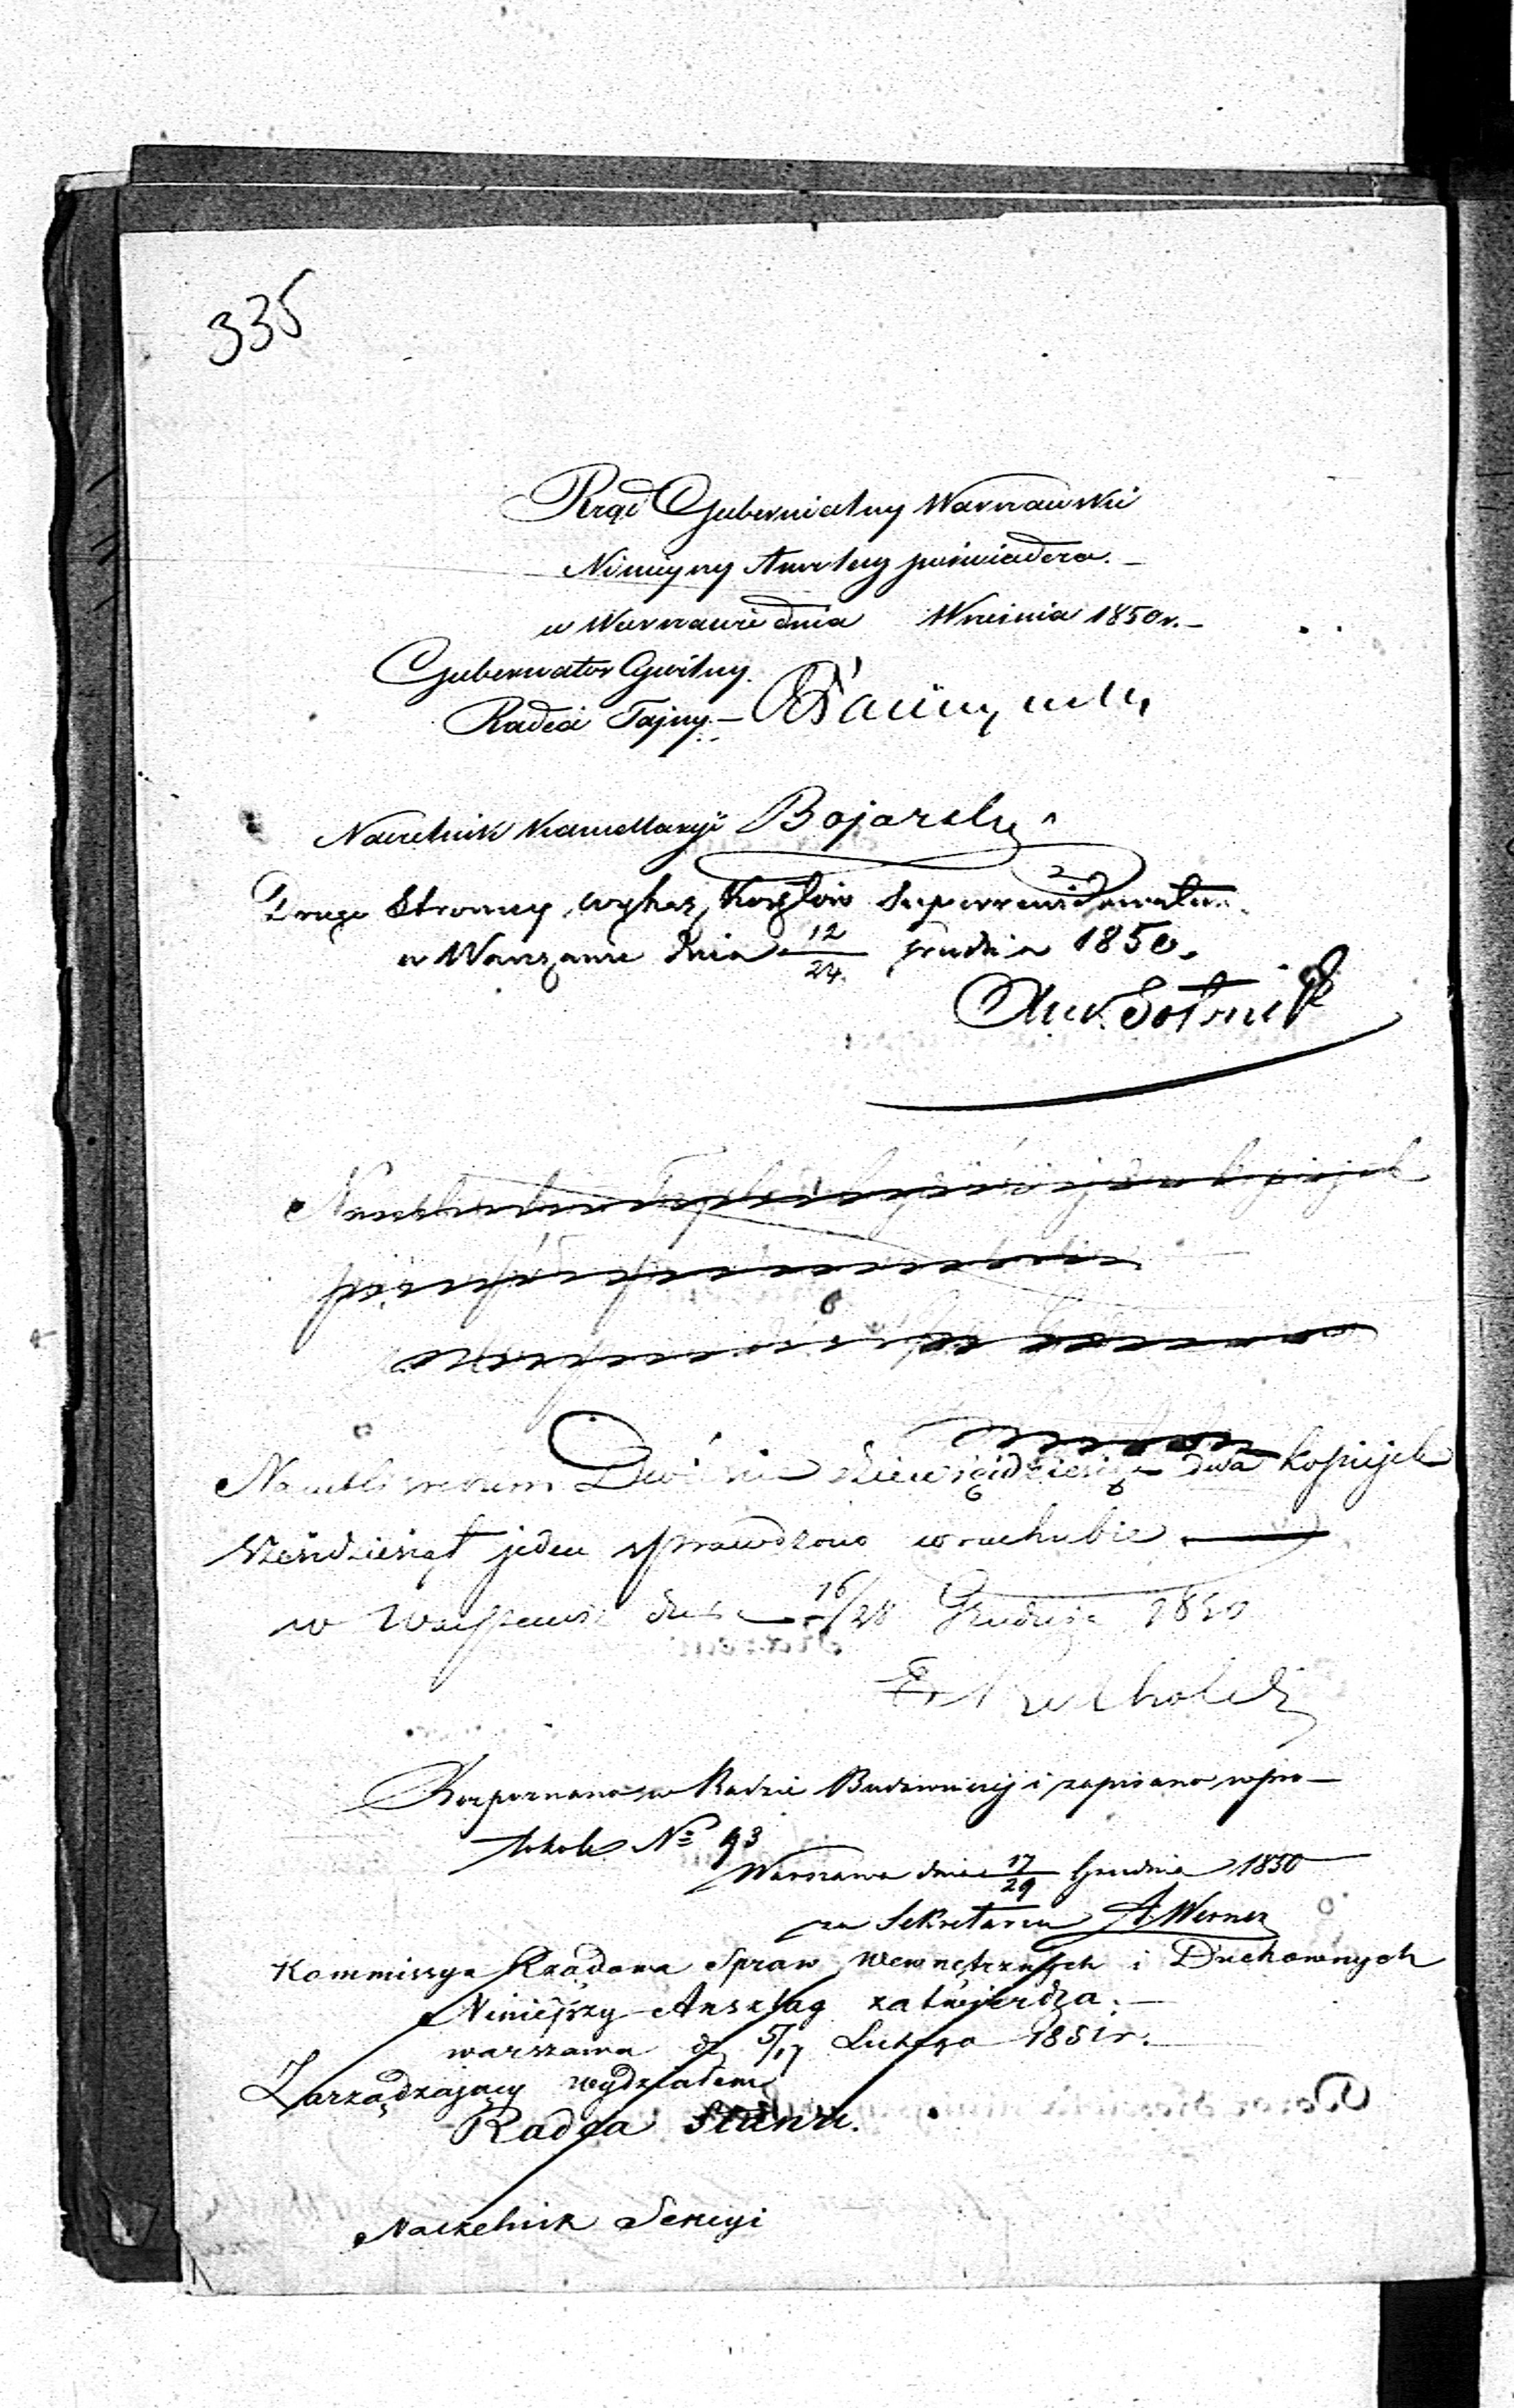 335
Rząd Gubernialny Warszawski
Niniejszy Anszlag poświadcza. —
w Warszawie dnia Września 1850 r. —
Gubernator Cywilny.
Radca Tajny. —
Naczelnik Kancellaryi Bojarski
Drugo Stronny wykaz Kosztów Superrewidowałem
w Warszawie dnia 12/24. Grudnia 1850.
Na rubli srebrem Dwieście dziewięćdziesiąt dwa kopijek
sześćdziesiąt jeden sprawdzono w rachubie —
w Warszawie dnia 16/28 Grudnia 1850
Rozpoznano w Radzie Budowniczej i zapisano w pro—
tokole № 93
Warszawa dnia 17/29 Grudnia 1850
za Sekretarza A. Werner
Kommissya Rządowa Spraw Wewnętrznych i Duchownych
Niniejszy Anszlag zatwierdza. —
warszawa d. 5/17 Lutego 1851 r. —
Zarządzający wydziałem
Radca Stanu.
Naczelnik Sekcyi